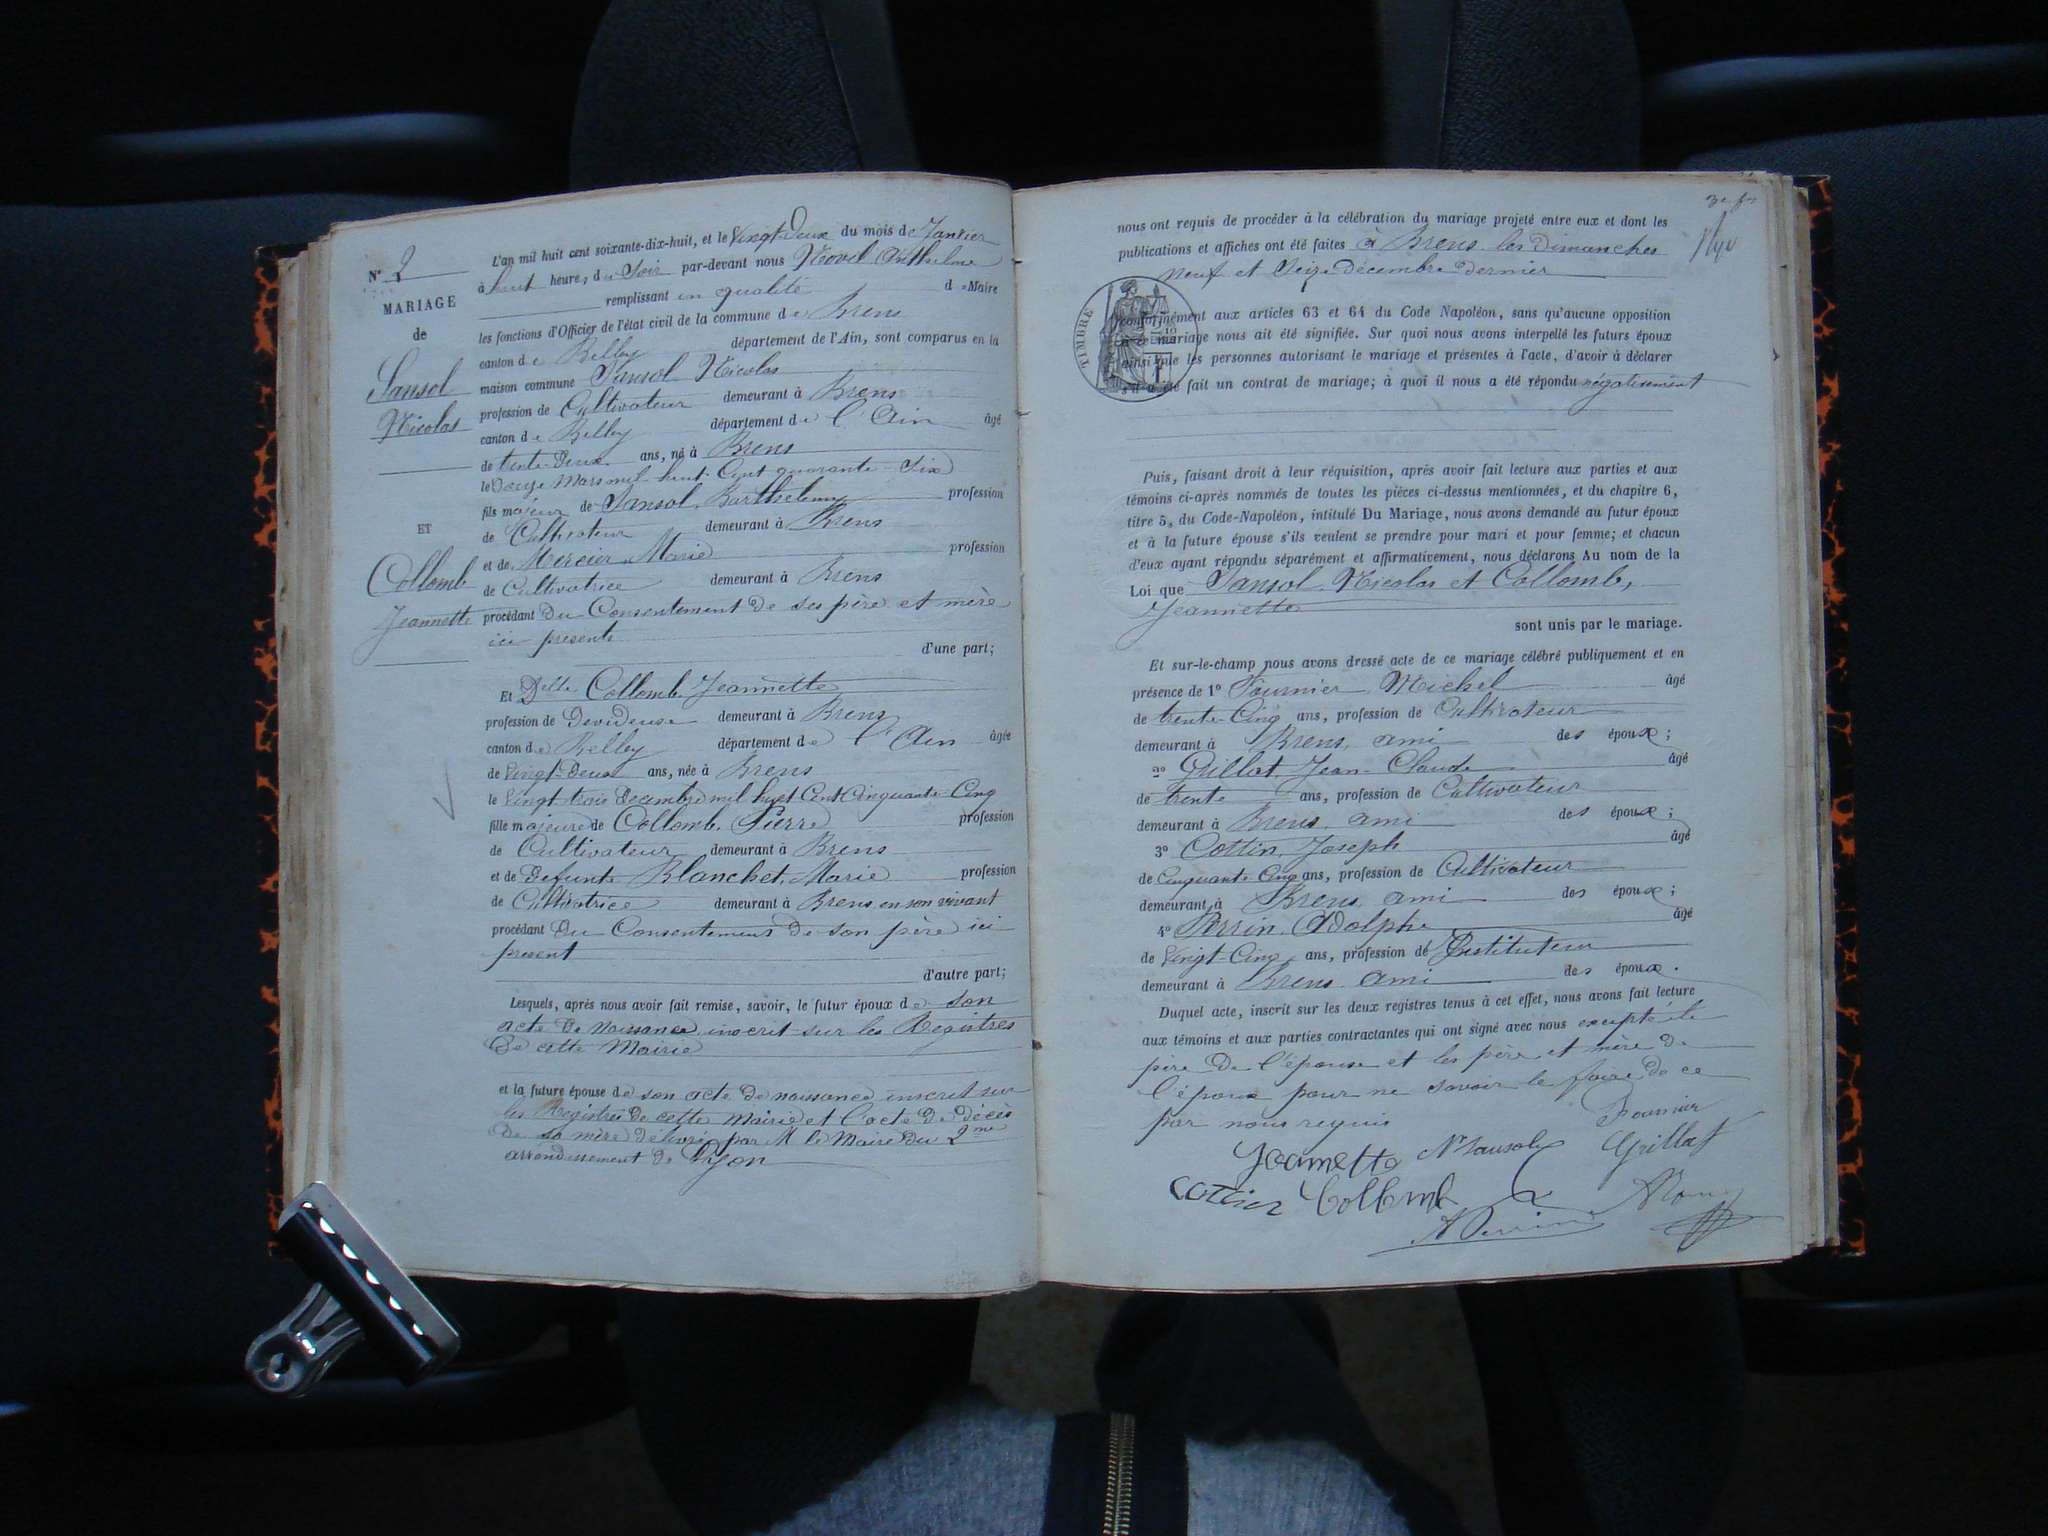 N° 2
MARIAGE
de
Sansol
Nicolas
ET
Collomb
Jeannette
L'an mil huit cent soixante-dix-huit, et le Vingt-Deux du mois de Janvier
à huit heure, du Soir par-devant nous Novel Anthelme
remplissant en qualité d Maire
les fonctions d'Officier de l'état civil de la commune de Brens
canton de Belley département de l'Ain, sont comparus en la
maison commune Sansol Nicolas
profession de Cultivateur demeurant à Brens
canton de Belley département de l'Ain âgé
de trente-Deux ans, né à Brens
le Douze Mars mil huit Cent quarante-Six
fils majeur de Sansol Barthelemy profession
de Cultivateur demeurant à Brens
et de Mercier Marie profession
de Cultivatrice demeurant à Brens
procédant du Consentement de ses père et mère
ici présents
d'une part;
Et Delle Collomb Jeannette
profession de Devideuse demeurant à Brens
canton de Belley département de l'Ain âgée
de Vingt-Deux ans, née à Brens
le Vingt trois Decembre mil huit Cent Cinquante-Cinq
fille majeure de Collomb Pierre profession
de Cultivateur demeurant à Brens
et de Defunte Blanchet Marie profession
de Cultivatrice demeurant à Brens en son vivant
procédant du Consentement de son père ici
présent
d'autre part;
Lesquels, après nous avoir fait remise, savoir, le futur époux de son
acte de naissance inscrit sur les Registres
de cette Mairie
et la future épouse de son acte de naissance inscrit sur
les Registres de cette Mairie et l'acte de décès
de sa mère délivré par M le Maire du 2me
arrondissement de Lyon
nous ont requis de procéder à la célébration du mariage projeté entre eux et dont les
publications et affiches ont été faites à Brens les dimanches
neuf et Seize décembre dernier
TIMBRE
conformément aux articles 63 et 64 du Code Napoléon, sans qu'aucune opposition
à ce mariage nous ait été signifiée. Sur quoi nous avons interpellé les futurs époux
ainsi que les personnes autorisant le mariage et présentes à l'acte, d'avoir à déclarer
s'il a été fait un contrat de mariage; à quoi il nous a été répondu négativement
Puis, faisant droit à leur réquisition, après avoir fait lecture aux parties et aux
témoins ci-après nommés de toutes les pièces ci-dessus mentionnées, et du chapitre 6,
titre 5, du Code-Napoléon, intitulé Du Mariage, nous avons demandé au futur époux
et à la future épouse s'ils veulent se prendre pour mari et pour femme; et chacun
d'eux ayant répondu séparément et affirmativement, nous déclarons Au nom de la
Loi que Sansol Nicolas et Collomb,
Jeannette
sont unis par le mariage.
Et sur-le-champ nous avons dressé acte de ce mariage célébré publiquement et en
présence de 1° Fournier Michel âgé
de trente-Cinq ans, profession de Cultivateur
demeurant à Brens, ami des époux;
2° Grillat Jean-Claude âgé
de trente ans, profession de Cultivateur
demeurant à Brens ami des époux;
3° Cottin Joseph âgé
de Cinquante Cinq ans, profession de Cultivateur
demeurant à Brens ami des époux;
4° Perrin Adolphe âgé
de Vingt-Cinq ans, profession de Instituteur
demeurant à Brens ami des époux.
Duquel acte, inscrit sur les deux registres tenus à cet effet, nous avons fait lecture
aux témoins et aux parties contractantes qui ont signé avec nous excepté le
père de l'épouse et les père et mère de
l'époux pour ne savoir le faire de ce
par nous requis
Fournier
Jeannette Ns Sansol Grillat
Cottin Collomb
A Perrin